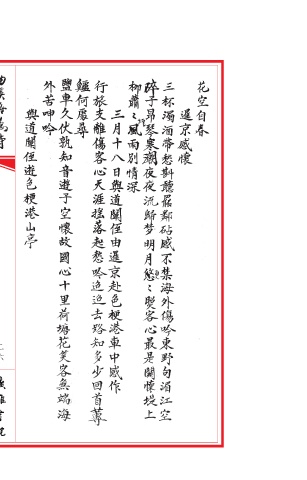 花空自春
暹京感懷
三杯濁酒帶愁斟聽罷鄰砧感不禁海外傷吟東野句湄江空
碎子昂琴寒潮夜夜流歸夢明月悠悠照客心最是關懷堤上
柳蕭蕭風雨別情深
三月十八日與道闌侄由暹京赴色梗港車中感作
行旅支離傷客心天涯搖落起愁吟迢迢去路知多少回首蓴
鱸何處尋
鹽車久伏孰知音遊子空懷故國心十里荷塘花笑客無端海
外苦呻吟
與道闌侄遊色梗港山亭